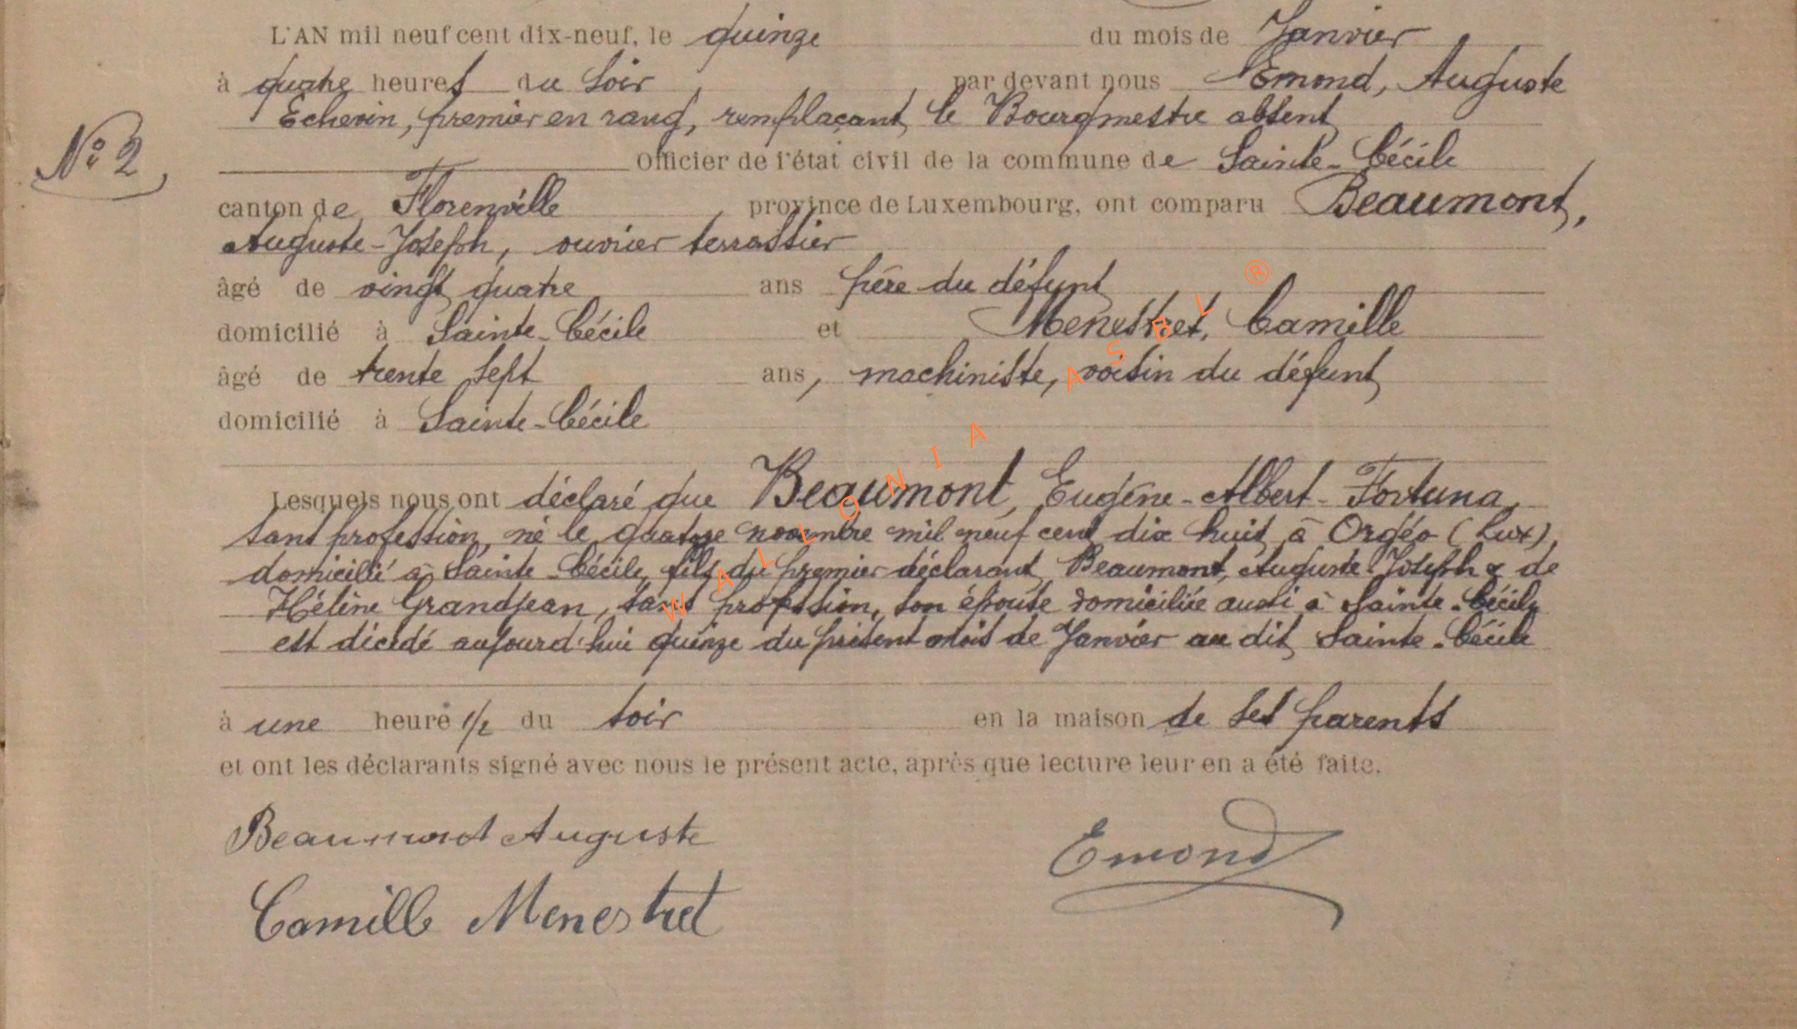 L'AN mil neuf cent dix-neuf, le quinze du mois de Janvier
à quatre heures du soir par devant nous Emond, Auguste
Echevin, premier en rang, remplaçant le Bourgmestre absent
N° 2, Officier de l'état civil de la commune de Sainte-Cécile
canton de Florenville province de Luxembourg, ont comparu Beaumont,
Auguste-Joseph, ouvrier terrassier
âgé de vingt quatre ans père du défunt
domicilié à Sainte-Cécile et Menestret, Camille
âgé de trente sept ans, machiniste, voisin du défunt
domicilié à Sainte-Cécile
Lesquels nous ont déclaré que Beaumont, Eugène-Albert-Fortuna,
sans profession, né le quatorze novembre mil neuf cent dix huit à Orgéo (Lux),
domicilié à Sainte-Cécile, fils du premier déclarant Beaumont, Auguste-Joseph & de
Hélène Grandjean, sans profession, son épouse domiciliée aussi à Sainte-Cécile
est décédé aujourd'hui quinze du présent mois de Janvier au dit Sainte-Cécile
à une heure 1/2 du soir en la maison de ses parents
et ont les déclarants signé avec nous le présent acte, après que lecture leur en a été faite.
Beaumont Auguste
Emond
Camille Menestret
WALLONIA ASBL ®